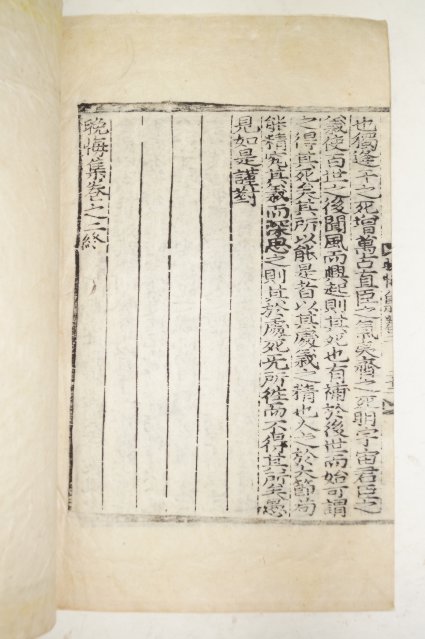 也獨逢干之死增萬古直臣之氣夷齊之死明宇宙君臣之
義使百世之後聞風而興起則其死也有補於後世而始可謂
之得其死矣其所以能是者以其處義之精也人之於大節苟
能精究其義而深思之則其於處死无所往而不得其所矣愚
見如是謹對
晩悔集卷之二終